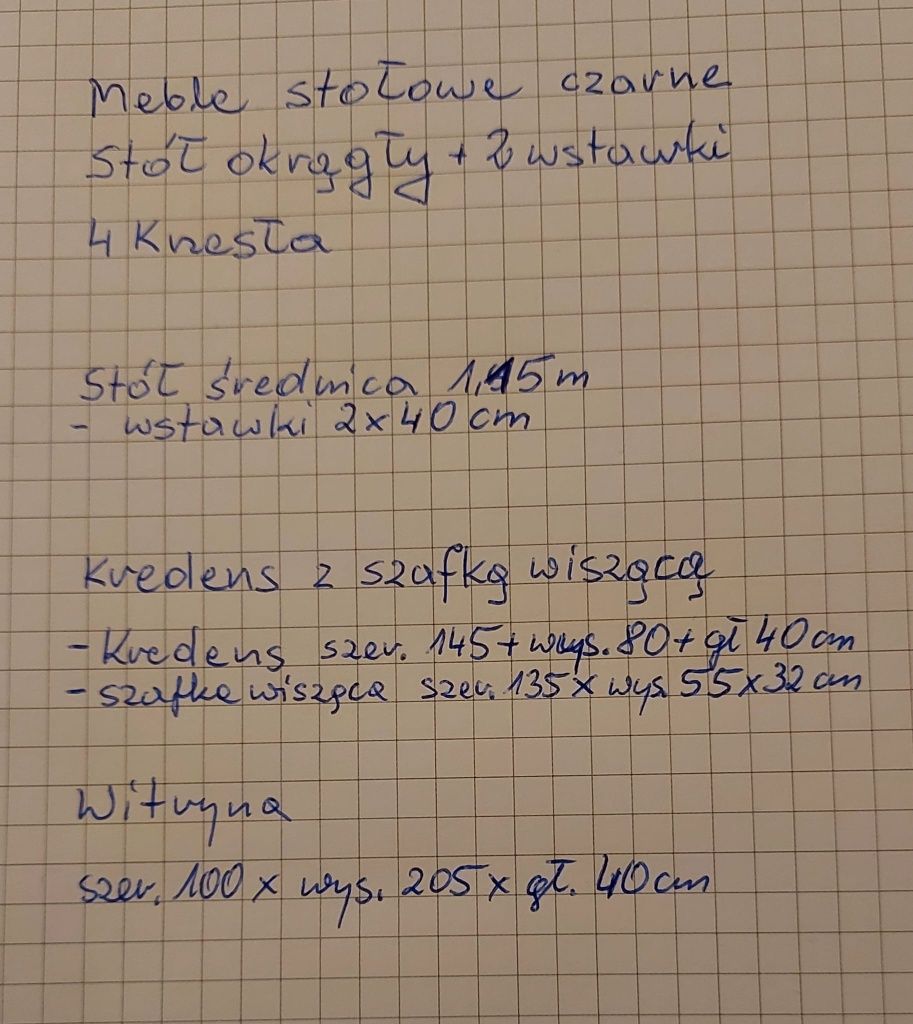 Meble stołowe czarne
Stół okrągły + 2 wstawki
4 Krzesła
Stół średnica 1,15 m
- wstawki 2x40 cm
Kredens z szafką wiszącą
- Kredens szer. 145 + wys. 80 + gł 40 cm
- szafka wisząca szer. 135 x wys 55 x 32 cm
Witryna
szer. 100 x wys. 205 x gł. 40 cm